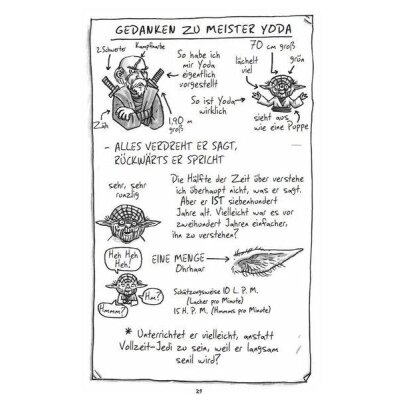 GEDANKEN ZU MEISTER YODA
2 Schwerter
Kampfnarbe
Zäh
So habe ich
mir Yoda
eigentlich
vorgestellt
1,90 m
groß
70 cm groß
lächelt
viel
grün
So ist Yoda
wirklich
sieht aus
wie eine Puppe
- ALLES VERDREHT ER SAGT,
RÜCKWÄRTS ER SPRICHT
sehr, sehr
runzlig
Die Hälfte der Zeit über verstehe
ich überhaupt nicht, was er sagt.
Aber er IST siebenhundert
Jahre alt. Vielleicht war es vor
zweihundert Jahren einfacher,
ihn zu verstehen?
Heh Heh
Heh!
Hm?
Hmmm?
EINE MENGE
Ohrhaar
Schätzungsweise 10 L. P. M.
(Lacher pro Minute)
15 H. P. M. (Hmmms pro Minute)
* Unterrichtet er vielleicht, anstatt
Vollzeit-Jedi zu sein, weil er langsam
senil wird?
29